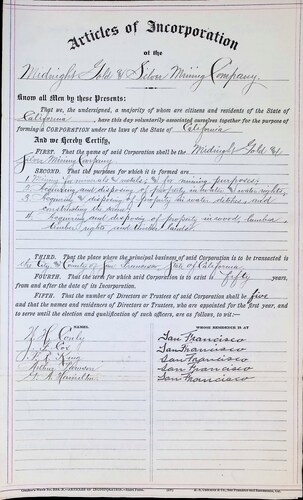 Articles of Incorporation
of the
Midnight Gold & Silver Mining Company.
Know all Men by these Presents:
That we, the undersigned, a majority of whom are citizens and residents of the State of
California, have this day voluntarily associated ourselves together for the purpose of
forming a CORPORATION under the laws of the State of California
And we Hereby Certify,
FIRST. That the name of said Corporation shall be the Midnight Gold &
Silver Mining Company.
SECOND. That the purposes for which it is formed are
1. Mining for minerals & metals; & for mining purposes:
2. Acquiring and disposing of property in water & water rights,
3. Acquiring & disposing of property in water ditches, and
4. Acquiring and disposing of property in wood, lumber
timber rights, and timber lands.
THIRD. That the place where the principal business of said Corporation is to be transacted
is the City & County of San Francisco, State of California.
FOURTH. That the term for which said Corporation is to exist is fifty years,
from and after the date of its Incorporation.
FIFTH. That the number of Directors or Trustees of said Corporation shall be five
and that the names and residences of Directors or Trustees, who are appointed for the first year, and
to serve until the election and qualification of such officers, are as follows, to wit:—
NAMES. WHOSE RESIDENCE IS AT
San Francisco
Cox San Francisco
King San Francisco
San Francisco
Hamilton San Francisco